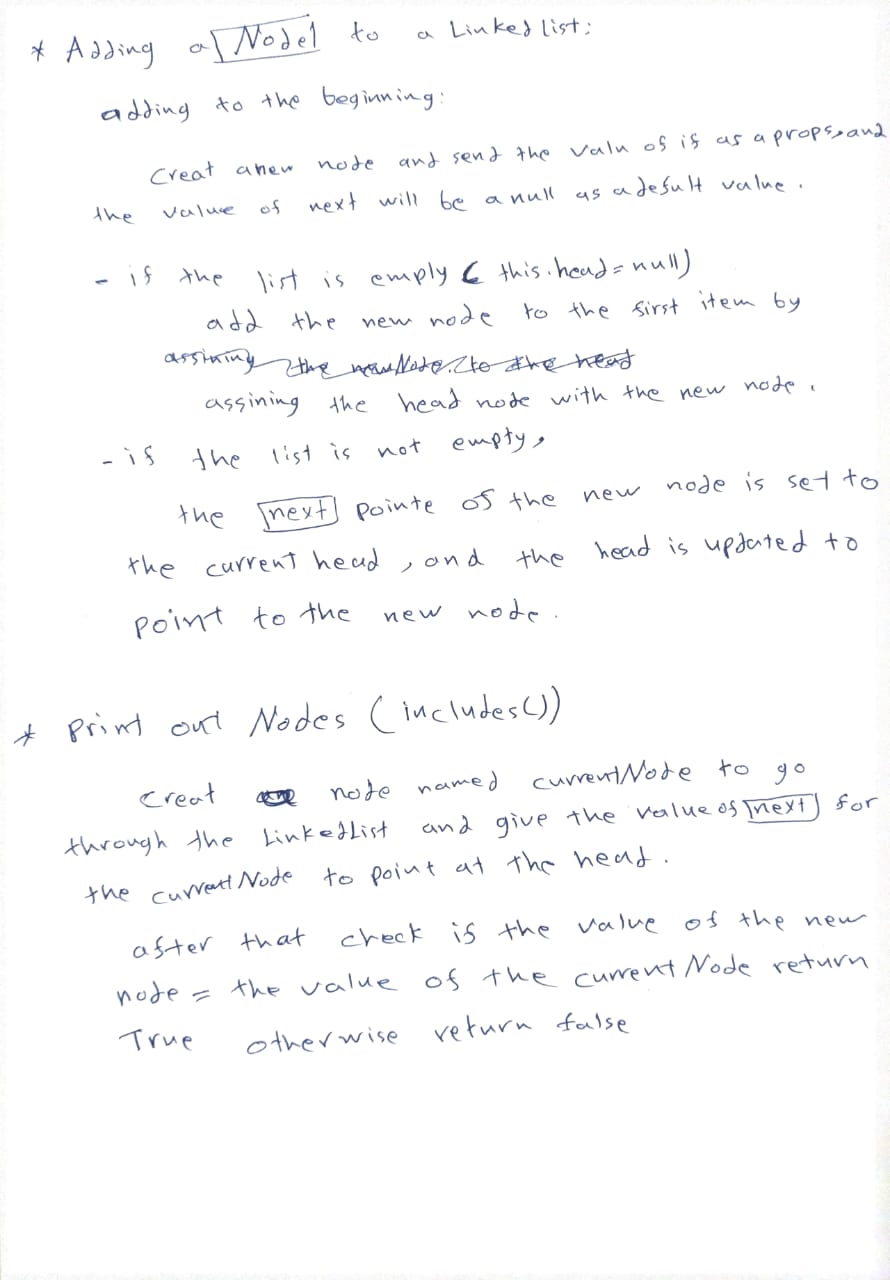 * Adding a Node to a Linked list:
adding to the beginning:
Creat a new node and send the valu of if as a props, and
the value of next will be a null as a defult value.
- if the list is emply ( this.head = null)
add the new node to the first item by
assining the newNode to the head
assining the head node with the new node,
- if the list is not empty,
the next pointe of the new node is set to
the current head, and the head is updated to
point to the new node.
* Print out Nodes (includes())
Creat node named currentNode to go
through the LinkedList and give the value of next for
the currentNode to point at the head.
after that check if the value of the new
node = the value of the currentNode return
True otherwise return false